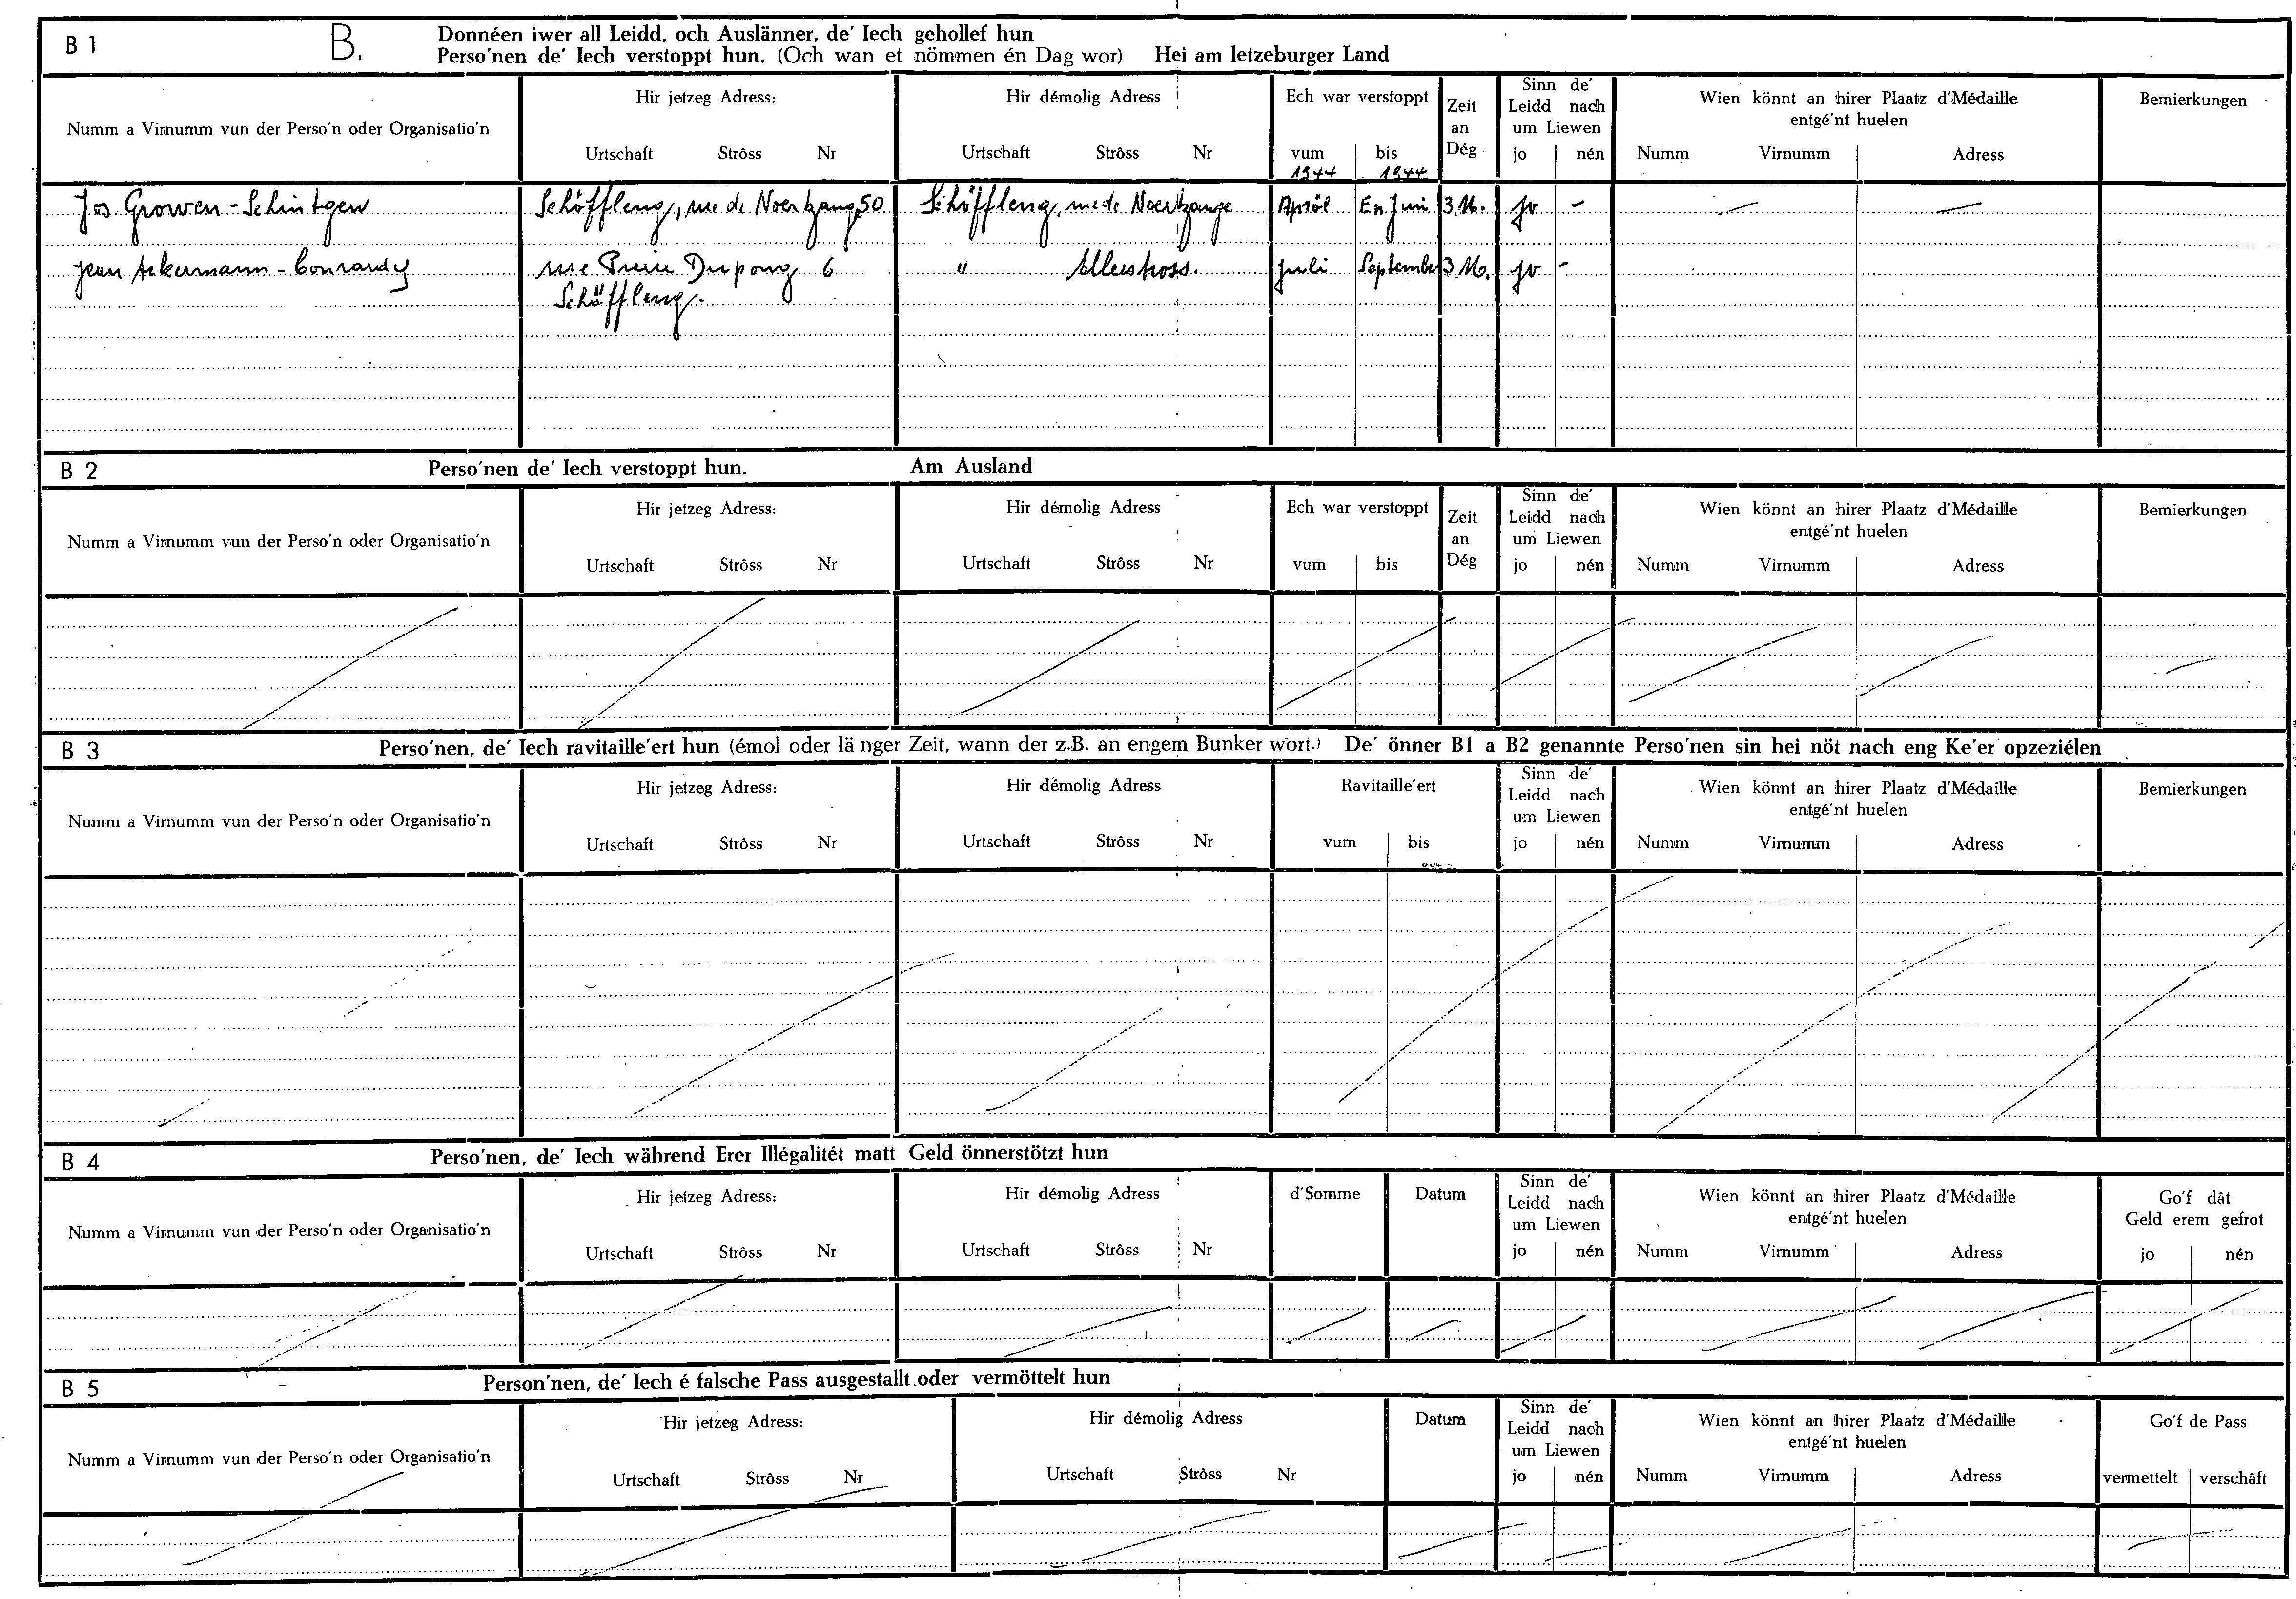 B 1 B. Donnéen iwer all Leidd, och Auslänner, de' Iech gehollef hun
Perso'nen de' Iech verstoppt hun. (Och wan et nömmen én Dag wor) Hei am letzeburger Land
Numm a Virnumm vun der Perso'n oder Organisatio'n
Hir jetzeg Adress:
Urtschaft Strôss Nr
Hir démolig Adress
Urtschaft Strôss Nr
Ech war verstoppt
vum bis
1944 1944
Zeit
an
Dég
Sinn de'
Leidd nach
um Liewen
jo nén
Wien könnt an hirer Plaatz d'Médaille
entgé'nt huelen
Numm Virnumm Adress
Bemierkungen
Jos Growen-Schintgen Schöffleng, rue de Noertzange, 50 Schöffleng, rue de Noertzange Apröl En Juni 3 M. jo - — —
Jean Ackermann-Conrardy rue Pierre Dupong 6 " Allerstross. Juli September 3 Mo. jo -
Schöffleng.
B 2 Perso'nen de' Iech verstoppt hun. Am Ausland
Numm a Virnumm vun der Perso'n oder Organisatio'n
Hir jetzeg Adress:
Urtschaft Strôss Nr
Hir démolig Adress
Urtschaft Strôss Nr
Ech war verstoppt
vum bis
Zeit
an
Dég
Sinn de'
Leidd nach
um Liewen
jo nén
Wien könnt an hirer Plaatz d'Médaille
entgé'nt huelen
Numm Virnumm Adress
Bemierkungen
B 3 Perso'nen, de' Iech ravitaille'ert hun (émol oder länger Zeit, wann der z.B. an engem Bunker wort.) De' önner B1 a B2 genannte Perso'nen sin hei nöt nach eng Ke'er opzeziélen
Numm a Virnumm vun der Perso'n oder Organisatio'n
Hir jetzeg Adress:
Urtschaft Strôss Nr
Hir démolig Adress
Urtschaft Strôss Nr
Ravitaille'ert
vum bis
Sinn de'
Leidd nach
um Liewen
jo nén
Wien könnt an hirer Plaatz d'Médaille
entgé'nt huelen
Numm Virnumm Adress
Bemierkungen
B 4 Perso'nen, de' Iech während Erer Illégalitét matt Geld önnerstötzt hun
Numm a Virnumm vun der Perso'n oder Organisatio'n
Hir jetzeg Adress:
Urtschaft Strôss Nr
Hir démolig Adress
Urtschaft Strôss Nr
d'Somme
Datum
Sinn de'
Leidd nach
um Liewen
jo nén
Wien könnt an hirer Plaatz d'Médaille
entgé'nt huelen
Numm Virnumm Adress
Go'f dât
Geld erem gefrot
jo nén
B 5 Person'nen, de' Iech é falsche Pass ausgestallt oder vermöttelt hun
Numm a Virnumm vun der Perso'n oder Organisatio'n
Hir jetzeg Adress:
Urtschaft Strôss Nr
Hir démolig Adress
Urtschaft Strôss Nr
Datum
Sinn de'
Leidd nach
um Liewen
jo nén
Wien könnt an hirer Plaatz d'Médaille
entgé'nt huelen
Numm Virnumm Adress
Go'f de Pass
vermettelt verschâft